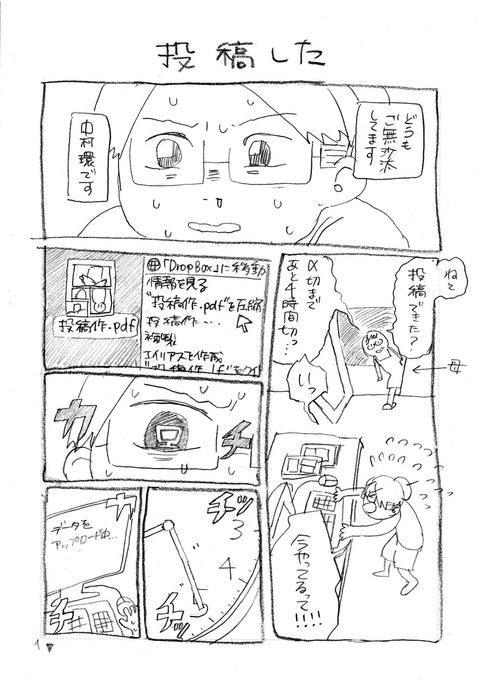 投稿した
どうも
ご無沙汰
してます
中村環です
「DropBox」に移動
情報を見る
"投稿作.pdf"を圧縮
投稿作…
複製
エイリアスを作成
投稿作.pdf
カチ
データを
アップロード中…
カチ
チッ
チッ
3
4
ねぇ
投稿できた？
〆切まで
あと4時間切っ…
いっ
母
今やってるって
!!!!
1